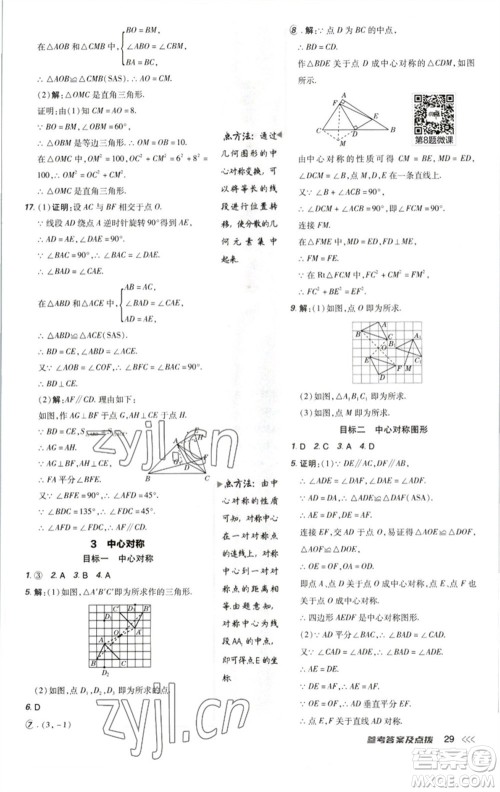 BO=BM,
在△AOB和△CMB中, ∠OBA=∠CBM,
BA=BC,
∴△AOB≌△CMB(SAS). ∴AO=MC.
(2)解:△OMC是直角三角形.
证明:由(1)知CM=AO=8.
∵BO=BM,∠OBM=60°,
∴△OBM是等边三角形. ∴OM=OB=10.
在△OMC中,OM²=100,OC²+CM²=6²+8²=100,
∴OM²=OC²+CM².
∴△OMC是直角三角形.
17.(1)证明:设AC与BF,OG相交于点O.
∵线段AD绕点A逆时针旋转90°得到AE,
∴AD=AE,∠DAE=90°.
∵∠BAC=90°,
∴∠BAC=∠DAE. ∴∠BAD=∠CAE.
BA=AC,
在△ABD和△ACE中, ∠BAD=∠CAE,
AD=AE,
∴△ABD≌△ACE(SAS). ∴∠ABD=∠ACE.
∵∠AOB=∠COF,
∴∠BFC=∠BAC=90°.
(2)解:FA平分∠BFE. 理由如下:
如图,作AG⊥BF于点G,AH⊥CE于点H.
∴BD=CE,
∴AG=AH.
又∵AG⊥BF,AH⊥CE,
∴FA平分∠BFE.
又∵∠BFE=90°,∴∠AFD=45°.
∵∠BDC=135°,∴∠FDC=45°.
∴∠AFD=∠FDC. ∴AF∥CD.
3 中心对称
目标一 中心对称
1.③ 2.A 3.B 4.A
5.(1)如图,△A'B'C'即为所求作的三角形.
(2)如图,点D₁,D₂,D₃即为所求.
6.D
7.(3,-1)
点方法:通过几何图形的中心对称变换,可以将等长的线段进行位置转移,使分散的几何元素集中起来.
点方法:由中心对称的性质可知,对称中心在一对对称点的连线上,对称中心到两个对称点的距离相等,由题意知,对称中心为线段AA₁的中点,即可求得点E的坐标.
8.证明:∵点D为BC的中点,
∴BD=CD.
作△BDE关于点D成中心对称的△CDM,如图所示.
第8题微课
由中心对称的性质可得CM=BE,MD=ED,∠DCM=∠B.
又∵∠B+∠ACB=90°,
∴∠DCM+∠ACB=90°,即∠FCM=90°.
连接FM.
在△FME中,MD=ED,FD⊥ED,
∴FM=FE.
又∵在Rt△FCM中,FC²+CM²=FM²,
∴FC²+BE²=EF².
9.解:(1)如图,点O即为所求.
(2)如图,△A₁B₁C₁即为所求.
(3)如图,点M即为所求.
目标二 中心对称图形
1.D 2.C 3.A 4.D
5.证明:(1)如图,∵DF∥AC,DE∥AB,
∴∠ADE=∠DAF,∠FDA=∠DAE.
又∵AD=DA,∴△ADE≌△DAF(ASA).
∴AE=DF,AF=DE.
连接EF交AD于点O.
∵∠EAO=∠FDO,∠AOE=∠DOF,
∴△AOE≌△DOF.
∴OE=OF,OA=OD,
即点A与点D关于点O中心对称,点E与点F关于点O中心对称.
∴四边形AEDF是中心对称图形.
(2)∵AE=AF,AE=DF,AF=DE,
∴AE=AF=DE=DF. ∴AD垂直平分EF.
∴点E,F关于直线AD对称.
参考答案及点拨 29
zyjl.cn